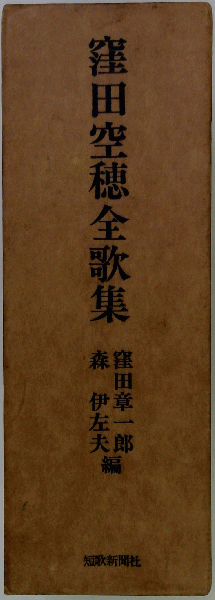 窪田空穂全歌集
窪田章一郎
森伊左夫
編
短歌新聞社